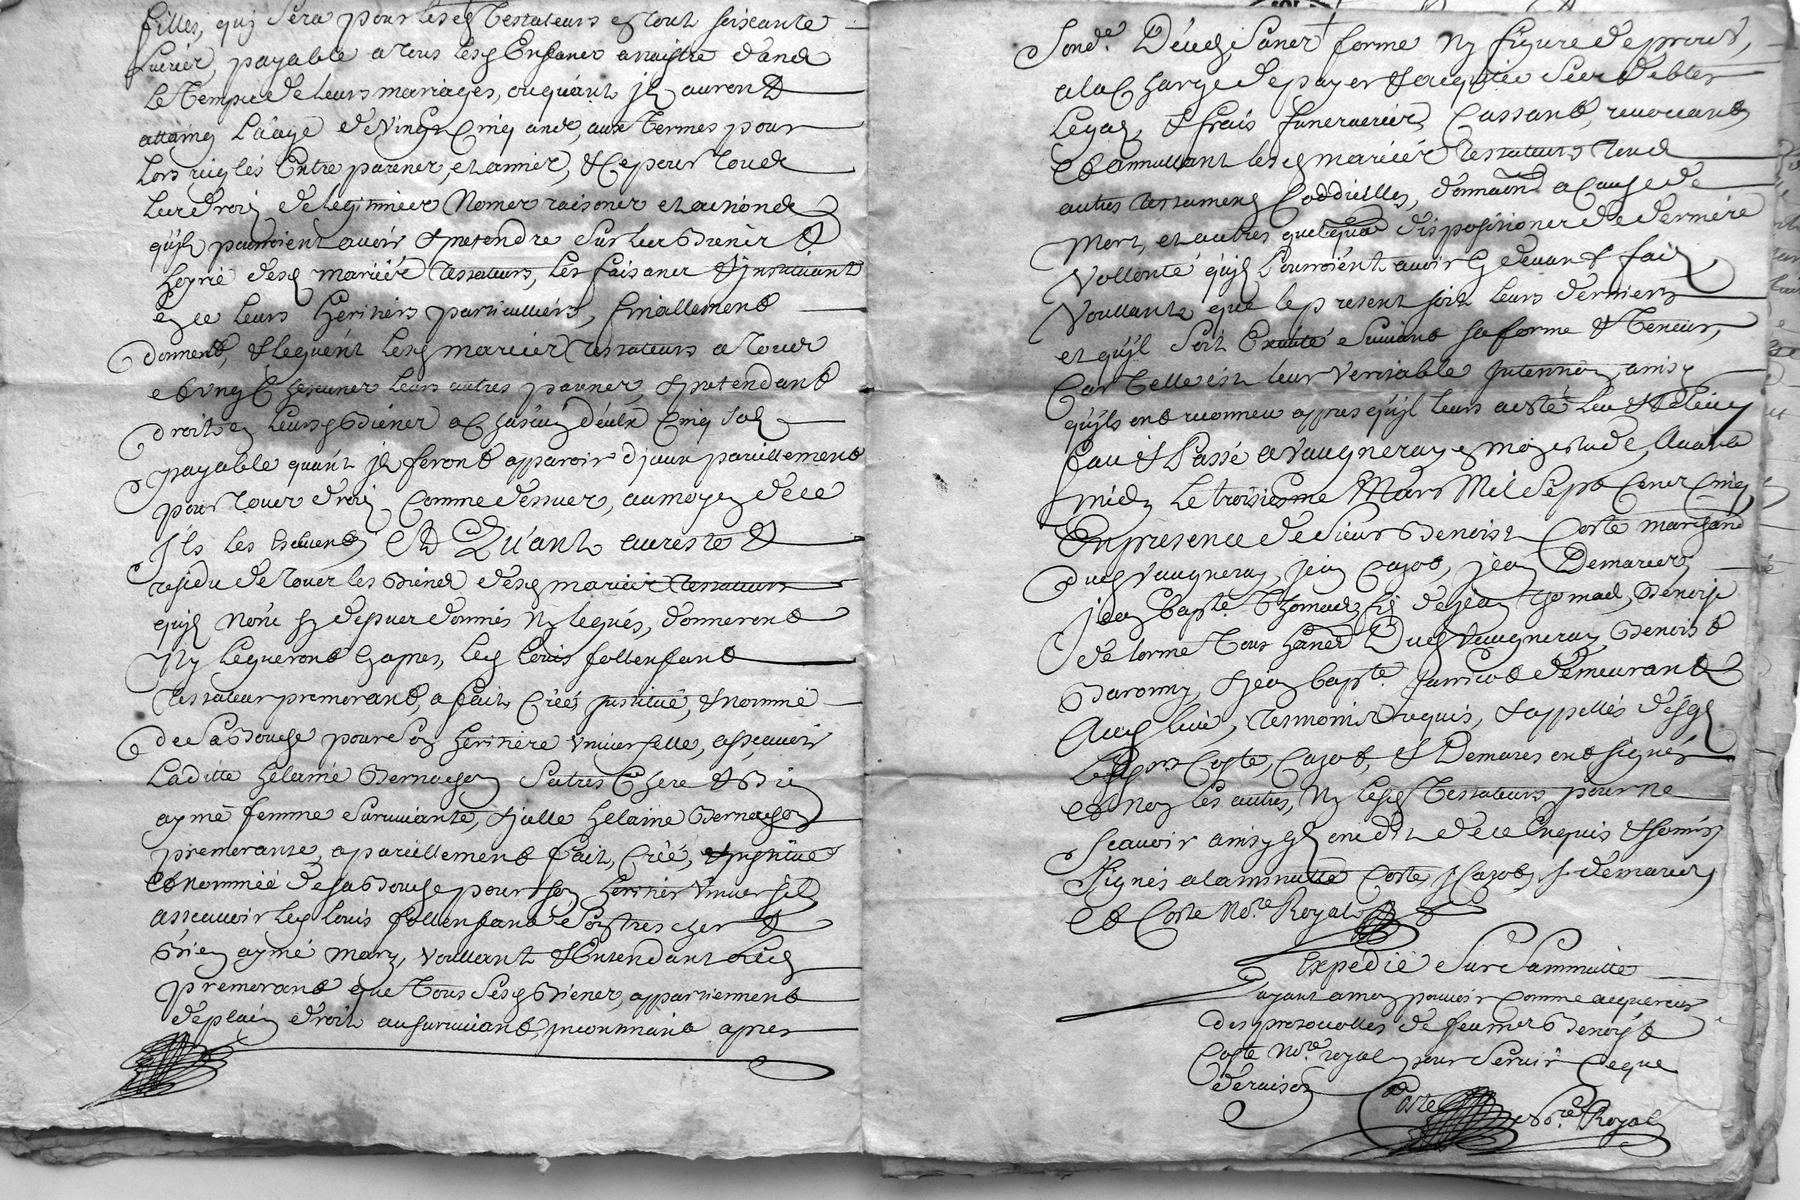 filles, quj sera pour lesd Testateurs en tout soixante
Livres, payable a tous lesd Enfans a naistre dans
Le Temps de leurs mariages, ou quant jls auront
attaing Laage de Vingt Cinq ans, aux termes pour
Lors reiglés Entre parens, et amies, & ce pour tous
Leurs droits de legitimes Noms raisons et actions
qujls pourroient avoir & pretendre sur les Biens &
hoyrie desd mariés testateurs, les faisans & jnstituant
en ce leurs heritiers particulliers, finallement
donnent, & leguent lesd mariés testateurs a tous
et Ungs Chescuns leurs autres parens, & pretendant
droit en leursd Biens a Chascun d'eulx Cinq sols
payable quant jls feront apparoir d'jceux pareillement
pour tous droits Comme dessus, au moyen de ce
Jls les Et Quant au reste &
residu de tous les Biens desd mariés testateurs
quils n'ont sy dessus donnés Ny legués, donneront
Ny legueront Cy apres, led Louis follenfant
testateur premorant, a fait Créé jnstitué, & nommé
de sa Bouche pour son heritiere Universelle, assavoir
Laditte helaine Bernachon sa tres Chere & Bien
aymé femme survivante, & jcelle helaine Bernachon
premorante, a pareillement fait, Créé, & jnstitué
et nommée de sa Bouche pour son heritier Universel
assavoir led Louis follenfant son tres cher &
Bien aymé mary, Voullant & Entendant led
premorant que tous sesd Biens, appartiennent
de plain droit au survivant, jncontinant apres
Sond. Déces sans forme Ny figure de proces,
a la Charge de payer & acquiter ses debtes
Legats, & frais funeraires, Cassant, revocant
et annullant lesd mariés testateurs tous
autres testamens Coddicilles, donnaons a Cause de
Mort, et autres quelques dispositions de derniere
Vollonté quils Pourroient avoir Cy devant fait
Voullants que le present soit leurs derniers
et qujl soit Exécuté suivant sa forme & teneur,
Car telle est leur Veritable Intention, ainsy
qujls ont reconneu appres qujl leurs a esté leu &
fait & Passé a Vaugneray en mon estude, Avant
midy Le troisiesme Mars Mil sept Cens Cinq
En presence de sieur Benoist Coste marchand
dud Vaugneray, jean Cazot, jean Demares
jean bapte Thomas, fils de jean Thomas, Benoist
de lorme tous habns Dud Vaugneray, Benoist
Baronny, & jean bapte demeurant
Aud lieu, tesmoins requis, & appellés desqls
Lesd Coste, Cazot, & Demares ont signés
et Non les autres, Ny lesd Testateurs pour ne
scavoir ainsy qls ont dit de ce Enquis & sommés
signés a la minutte Coste, J Cazot, J. demares
et Coste Nore Royal
Expedié sur sa minutte
ayant a moy pouvoir Comme acquereur
des protocolles de feu mre Benoist
Coste Nore royal pour servir Ce que
de raison
Coste Nore Royal